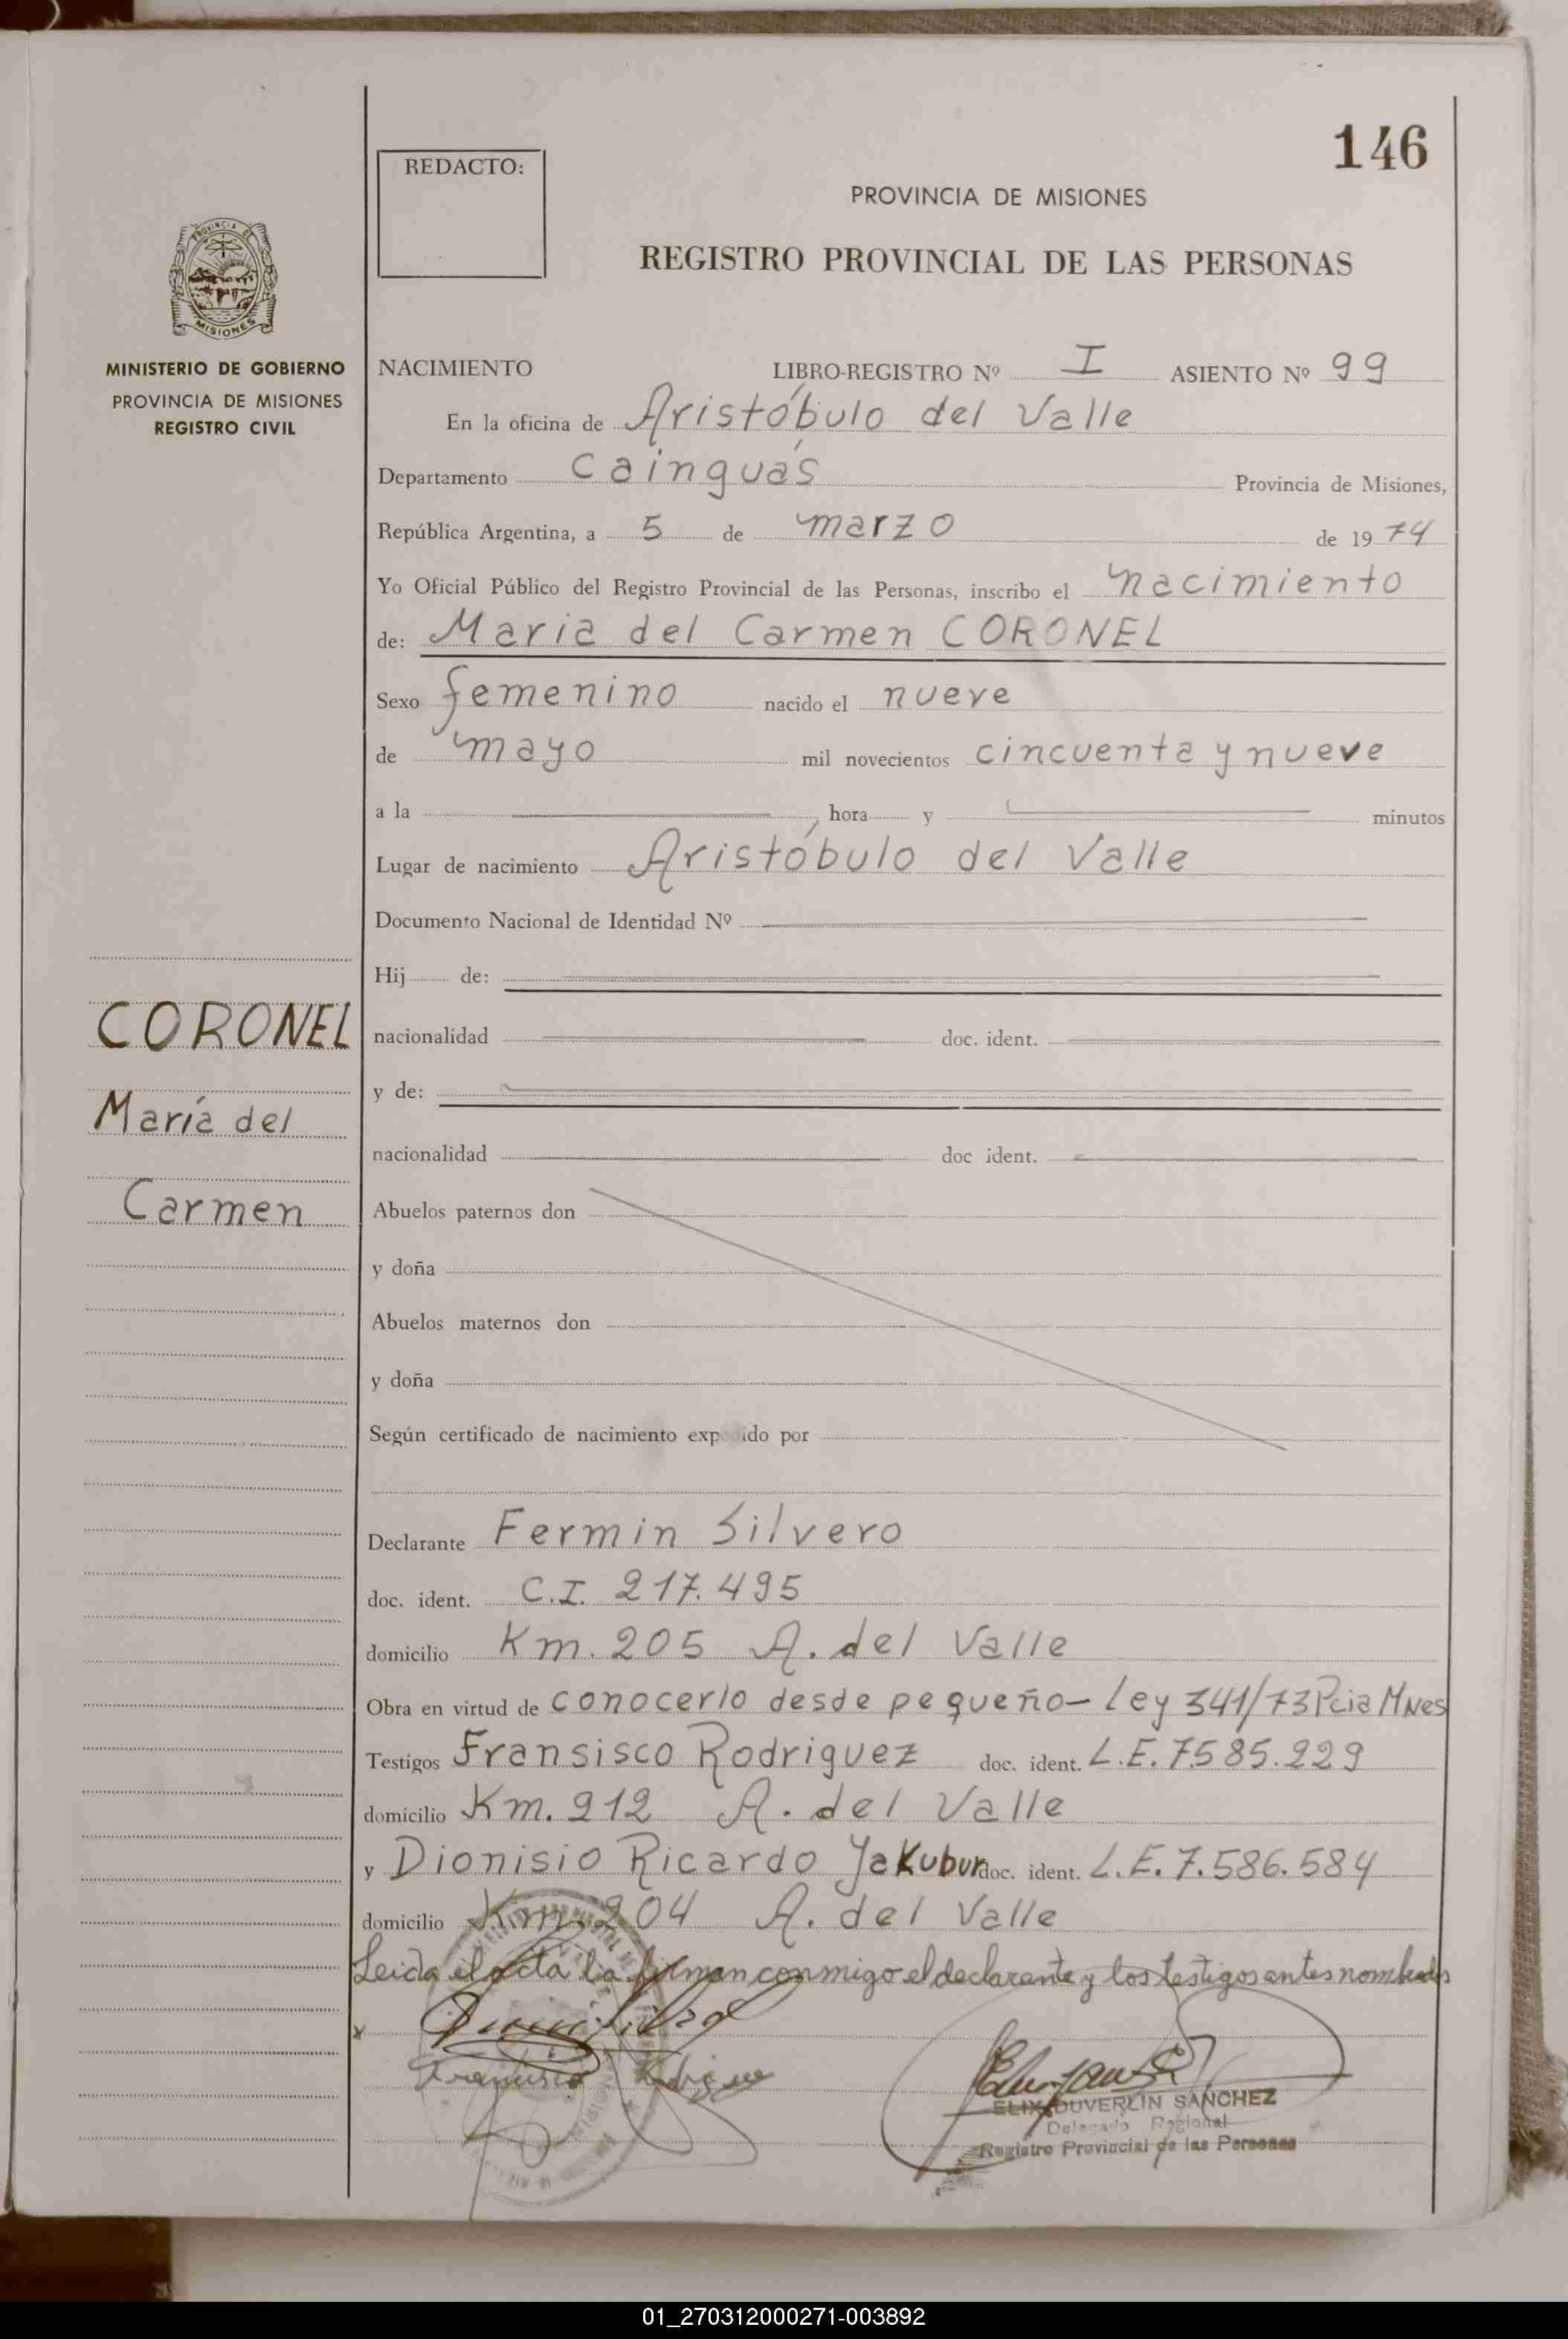 146
REDACTO:
PROVINCIA DE MISIONES
REGISTRO PROVINCIAL DE LAS PERSONAS
PROVINCIA DE
MISIONES
MINISTERIO DE GOBIERNO
PROVINCIA DE MISIONES
REGISTRO CIVIL
NACIMIENTO LIBRO-REGISTRO Nº I ASIENTO Nº 99
En la oficina de Aristóbulo del Valle
Departamento Cainguás Provincia de Misiones,
República Argentina, a 5 de marzo de 1974
Yo Oficial Público del Registro Provincial de las Personas, inscribo el nacimiento
de: Maria del Carmen CORONEL
Sexo femenino nacido el nueve
de mayo mil novecientos cincuenta y nueve
a la , hora y minutos
Lugar de nacimiento Aristóbulo del Valle
Documento Nacional de Identidad Nº
Hij de:
CORONEL
nacionalidad doc. ident.
y de:
María del
nacionalidad doc ident.
Carmen
Abuelos paternos don
y doña
Abuelos maternos don
y doña
Según certificado de nacimiento expedido por
Declarante Fermin Silvero
doc. ident. C.I. 217.495
domicilio Km. 205 A. del Valle
Obra en virtud de conocerlo desde pequeño- Ley 341/73 Pcia Mnes
Testigos Fransisco Rodriguez doc. ident. L.E. 7.585.229
domicilio Km. 212 A. del Valle
y Dionisio Ricardo Yakubur doc. ident. L.E. 7.586.584
domicilio Km. 204 A. del Valle
Leida el acta la firman conmigo el declarante y los testigos antes nombrados
x
Francisco Rodriguez
ELIX DUVERLIN SANCHEZ
Delegado Regional
Registro Provincial de las Personas
01_270312000271-003892